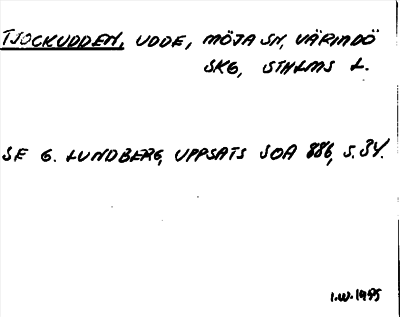 TJOCKUDDEN, UDDE, MÖJA SN, VÄRMDÖ
SKG, STHLMS L.
SE G. LUNDBERG, UPPSATS SOA 886, S. 34.
I.W. 1995